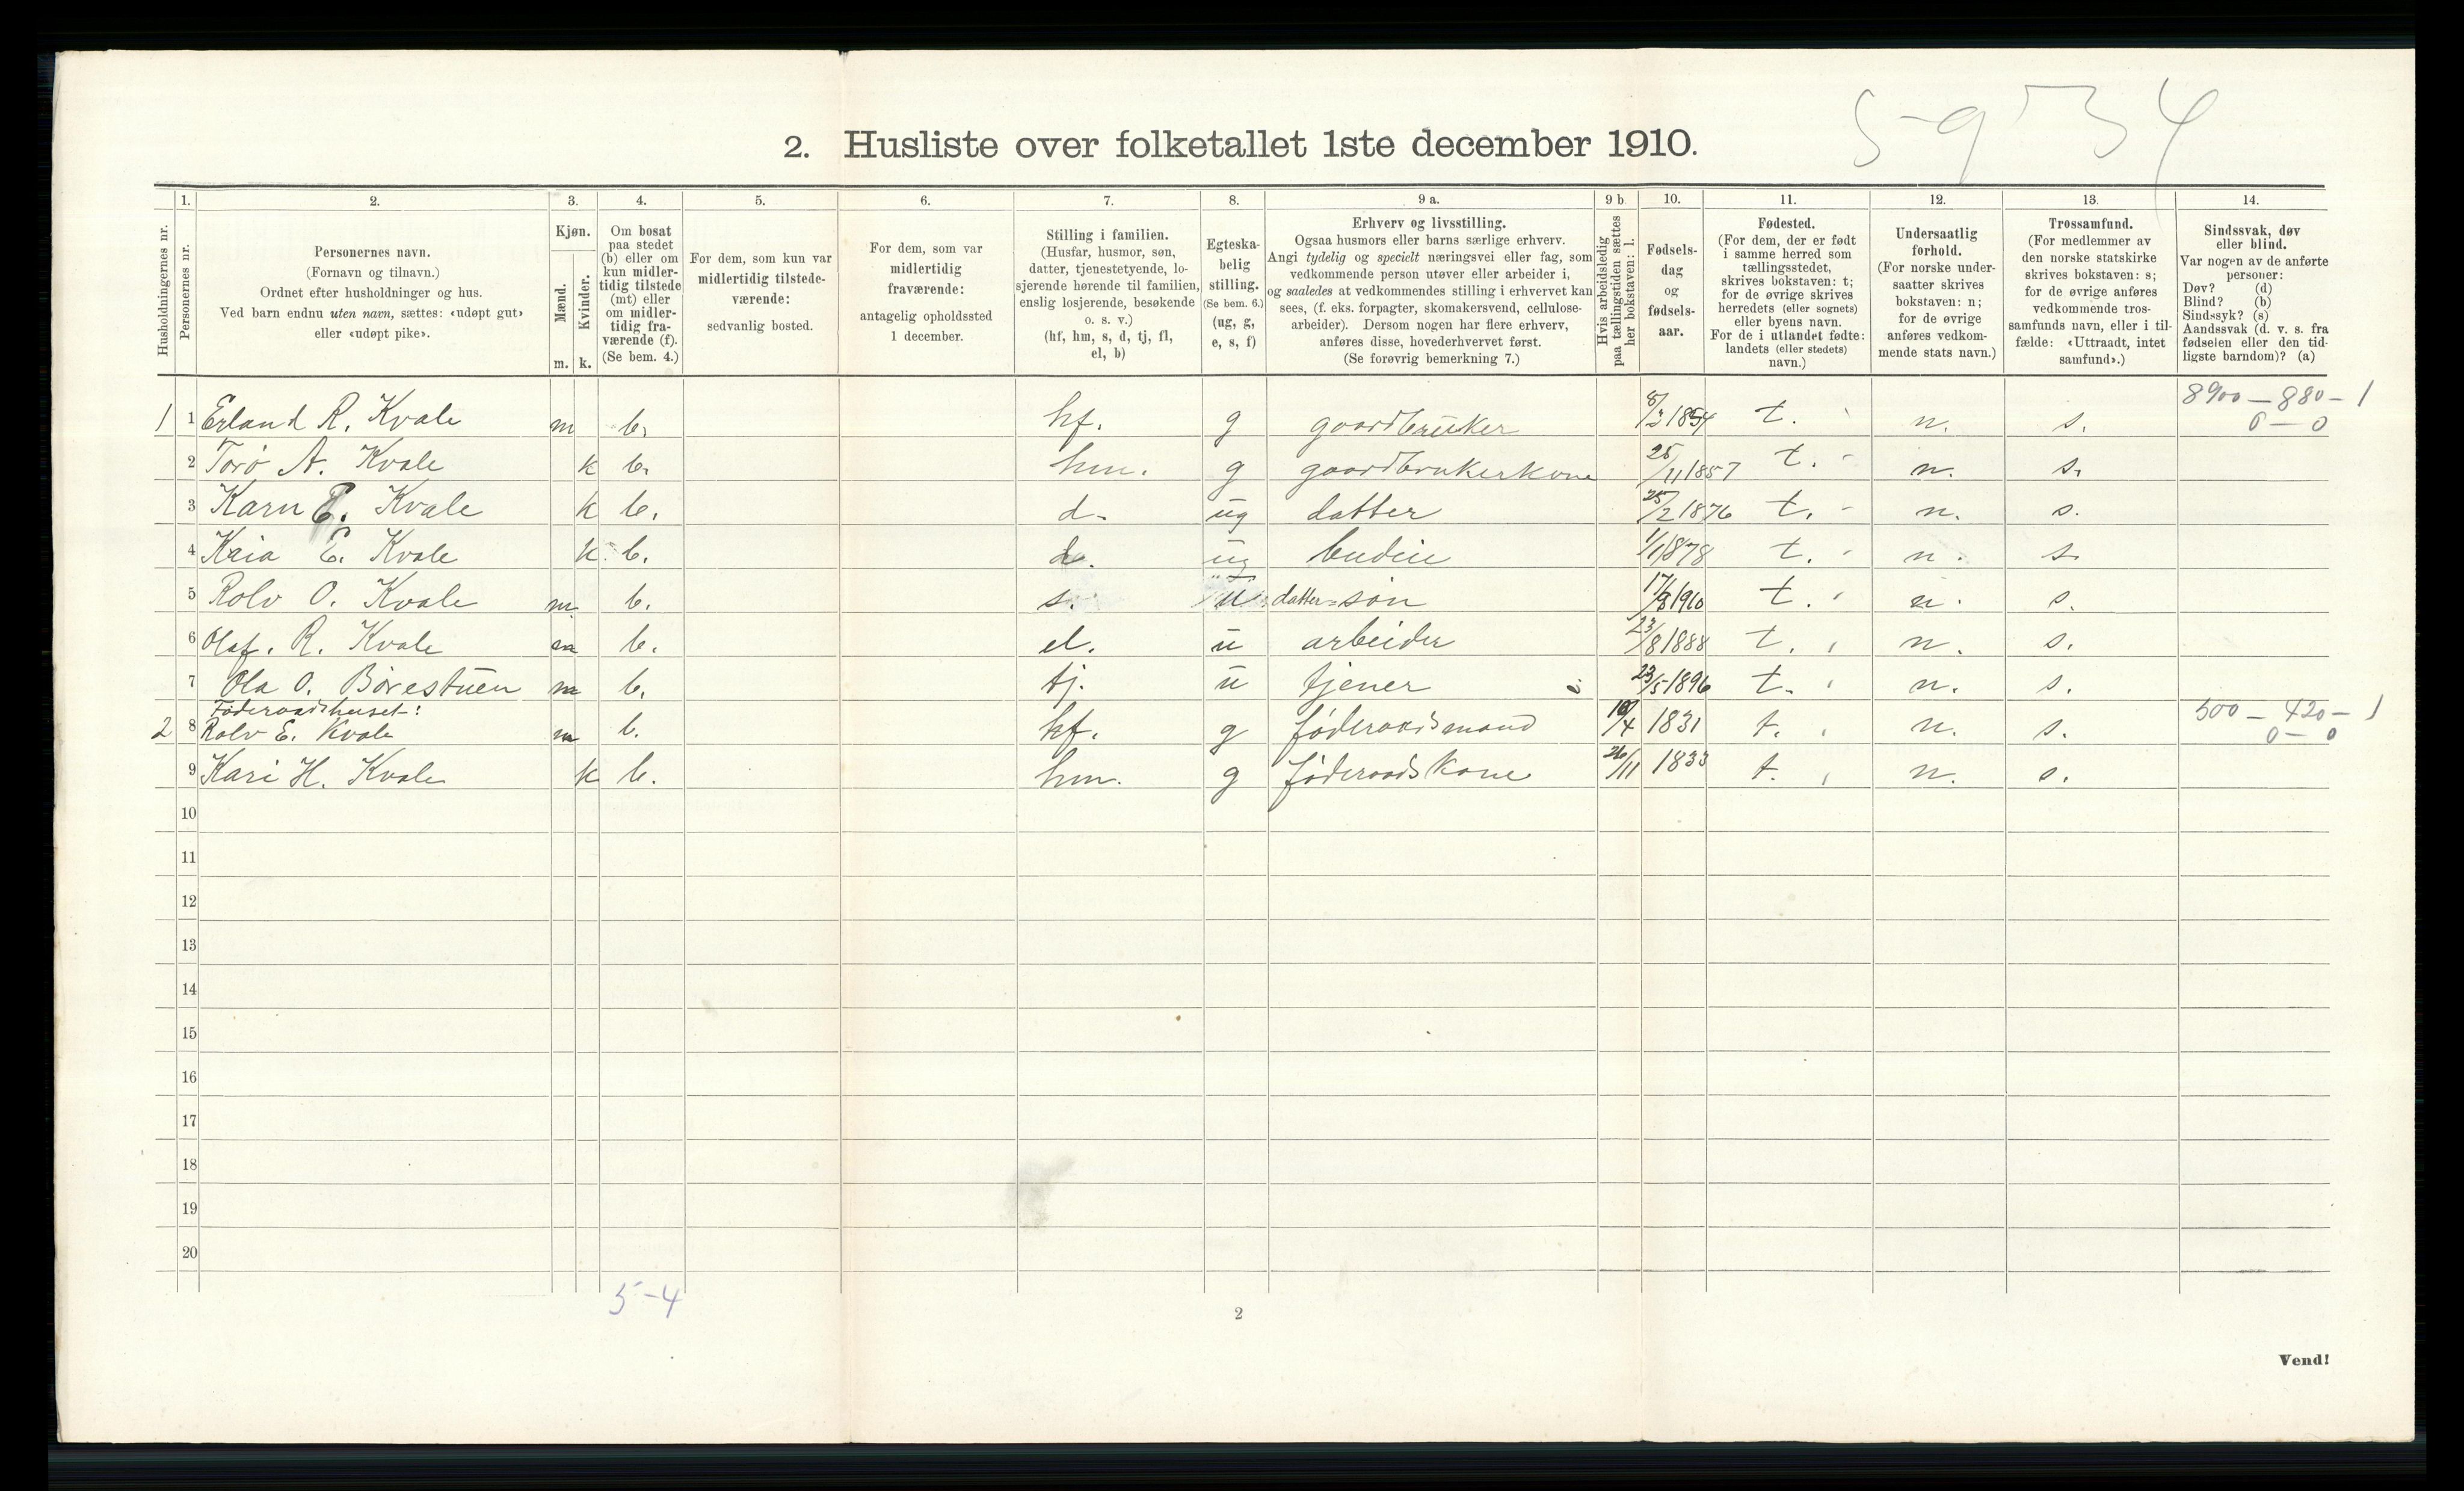 5-9 34
2. Husliste over folketallet 1ste december 1910.
Husholdningernes nr.
1. Personernes nr.
2. Personernes navn. (Fornavn og tilnavn.) Ordnet efter husholdninger og hus. Ved barn endnu uten navn, sættes: «udøpt gut» eller «udøpt pike».
3. Kjøn. Mænd. m. Kvinder. k.
4. Om bosat paa stedet (b) eller om kun midlertidig tilstede (mt) eller om midlertidig fraværende (f). (Se bem. 4.)
5. For dem, som kun var midlertidig tilstedeværende: sedvanlig bosted.
6. For dem, som var midlertidig fraværende: antagelig opholdssted 1 december.
7. Stilling i familien. (Husfar, husmor, søn, datter, tjenestetyende, losjerende hørende til familien, enslig losjerende, besøkende o. s. v.) (hf, hm, s, d, tj, fl, el, b)
8. Egteskabelig stilling. (Se bem. 6.) (ug, g, e, s, f)
9 a. Erhverv og livsstilling. Ogsaa husmors eller barns særlige erhverv. Angi tydelig og specielt næringsvei eller fag, som vedkommende person utøver eller arbeider i, og saaledes at vedkommendes stilling i erhvervet kan sees, (f. eks. forpagter, skomakersvend, cellulose-arbeider). Dersom nogen har flere erhverv, anføres disse, hovederhvervet først. (Se forøvrig bemerkning 7.)
9 b. Hvis arbeidsledig paa tællingstiden sættes her bokstaven: l.
10. Fødselsdag og fødselsaar.
11. Fødested. (For dem, der er født i samme herred som tællingsstedet, skrives bokstaven: t; for de øvrige skrives herredets (eller sognets) eller byens navn. For de i utlandet fødte: landets (eller stedets) navn.)
12. Undersaatlig forhold. (For norske undersaatter skrives bokstaven: n; for de øvrige anføres vedkommende stats navn.)
13. Trossamfund. (For medlemmer av den norske statskirke skrives bokstaven: s; for de øvrige anføres vedkommende trossamfunds navn, eller i tilfælde: «Uttraadt, intet samfund».)
14. Sindssvak, døv eller blind. Var nogen av de anførte personer: Døv? (d) Blind? (b) Sindssyk? (s) Aandssvak (d. v. s. fra fødselen eller den tidligste barndom)? (a)
1 1 Erland R. Kvale m b. hf. g gaardbruker 1854 t. n. s. 8900 - 880 - 1 0 - 0
2 Torø A. Kvale k b. hm. g gaardbrukerkone 25/11 1857 t. n. s.
3 Karn E. Kvale k b. d. ug datter 25/2 1876 t. n. s.
4 Kaia E. Kvale k b. d. ug budeie 1/1 1878 t. n. s
5 Rolv O. Kvale m b. s. u datter-søn 17/8 1910 t. n. s.
6 Olaf. R. Kvale m b. el. u arbeider 23/8 1888 t. n. s.
7 Ola O. Børestuen m b. tj. u tjener 23/5 1896 t. n. s.
Føderaadshuset:
2 8 Rolv E. Kvale m b. hf. g føderaadsmand 10/4 1831 t. n. s. 500 - 420 - 1 0 - 0
9 Kari H. Kvale k b. hm. g føderaadskone 26/11 1833 t. n. s.
10
11
12
13
14
15
16
17
18
19
20
5-4
2
Vend!